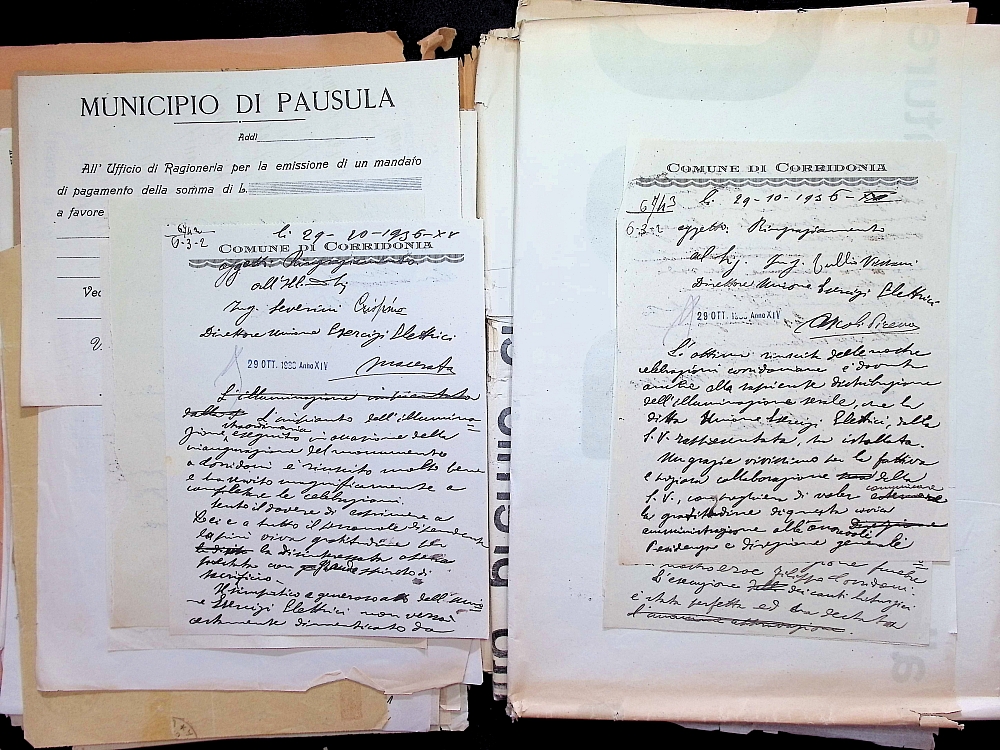 MUNICIPIO DI PAUSULA
Addì
All' Ufficio di Ragioneria per la emissione di un mandato
di pagamento della somma di L.
a favore
6743
6-3-2
li 29-10-1936-XV
COMUNE DI CORRIDONIA
oggetto Ringraziamento
all'Ill. Sig
Ing. Severini Crispino
Direttore Unione Esercizi Elettrici
29 OTT. 1936 Anno XIV
Macerata
L'illuminazione
L'impianto dell'illumina=
straordinaria
zione, eseguito in occasione della
inaugurazione del monumento
a Corridoni è riuscito molto bene
e ha servito magnificamente a
completare le celebrazioni.
Sento il dovere di esprimere a
Lei e a tutto il personale dipendente
la più viva gratitudine per
la disinteressata opera
prestata con grande spirito di
sacrificio.
Il simpatico e generoso atto dell'Unio
ne Esercizi Elettrici non verrà
certamente dimenticato da
COMUNE DI CORRIDONIA
6743
6-3-2
li 29-10-1936-
oggetto: Ringraziamento
al Sig. Ing. Tullio
Direttore Unione Esercizi Elettrici
29 OTT. 1936 Anno XIV
Ascoli Piceno
L'ottima riuscita delle nostre
celebrazioni corridoniane è dovuta
anche alla sapiente distribuzione
dell'illuminazione serale, che la
ditta Unione Esercizi Elettrici, dalla
S.V. rappresentata, ha istallata.
Ringrazio vivissimo per la fattiva
collaborazione della
S.V., con preghiera di voler comunicare
la gratitudine di questa civica
amministrazione alla On.
Presidenza e direzione generale
nostro eroe Filippo Corridoni.
L'esecuzione dei canti liturgici
è stata perfetta ed ha destato